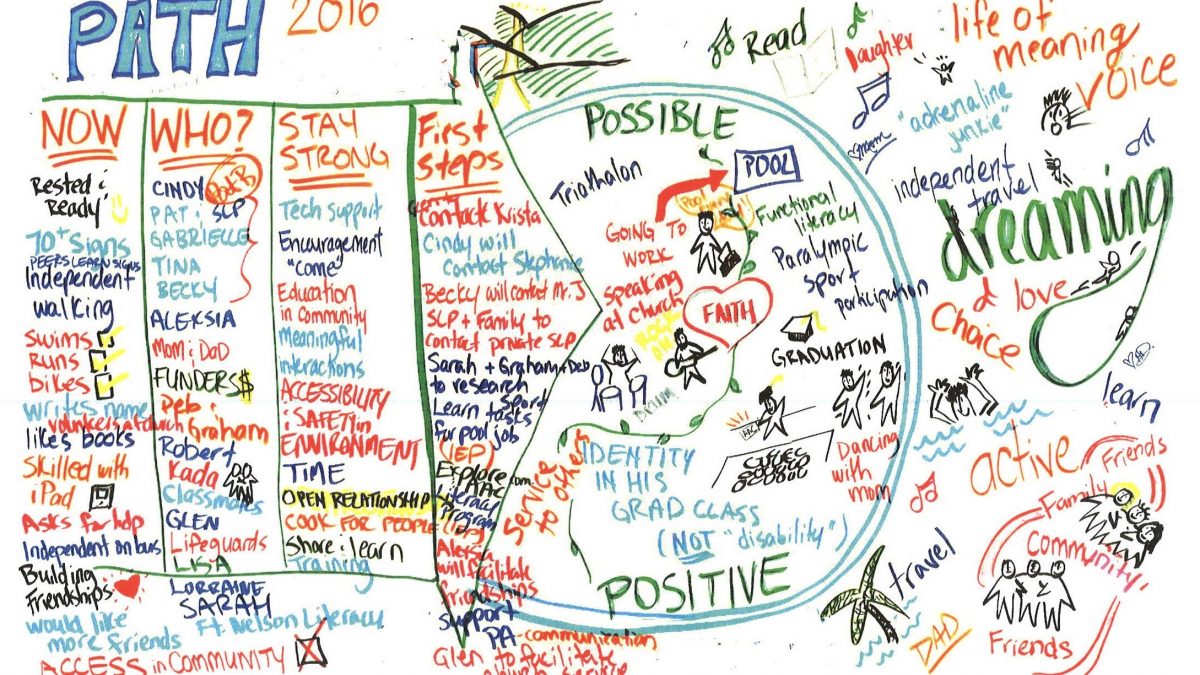 PATH 2016
NOW
Rested &
Ready
70+ Signs
PEERS LEARN SIGNS
Independent
walking
swims
Runs
bikes
writes name
volunteers at church
likes books
Skilled with
iPad
Asks for help
Independent on bus
Building
Friendships
would like
more friends
ACCESS in COMMUNITY
WHO?
CINDY
PAT & SLP
GABRIELLE
TINA
BECKY
ALEKSIA
MOM & DAD
FUNDERS $
Deb &
Graham
Robert
Kada
Classmates
GLEN
Lifeguards
LISA
LORRAINE
SARAH
Ft. Nelson Literacy
STAY
STRONG
Tech support
Encouragement
"come"
Education
in community
Meaningful
interactions
ACCESSIBILITY
& SAFETY in
ENVIRONMENT
TIME
OPEN RELATIONSHIP
COOK FOR PEOPLE
Share & learn
Training
First
steps
Contact Krista
Cindy will
contact Stephanie
Becky will contact Mr. J
SLP + Family to
contact private SLP
Sarah + Graham + Deb
to research
sport
Learn tasks
for pool job
(IEP)
Explore
AAC
Literacy
Program
Alexsia
will facilitate
friendships
support
PA - communication
Glen to facilitate
church service
POSSIBLE
Triathalon
POOL
GOING TO
WORK
Functional
literacy
Paralympic
sport
participation
speaking
at church
ROCK
ON
FAITH
GRADUATION
Drum
Dancing
with
mom
service
to others
IDENTITY
IN HIS
GRAD CLASS
(NOT "disability")
POSITIVE
Read
Daughter
life of
meaning
voice
"adrenaline
junkie"
independent
travel
dreaming
& love
choice
learn
active
Friends
Family
Community
Friends
travel
DAD